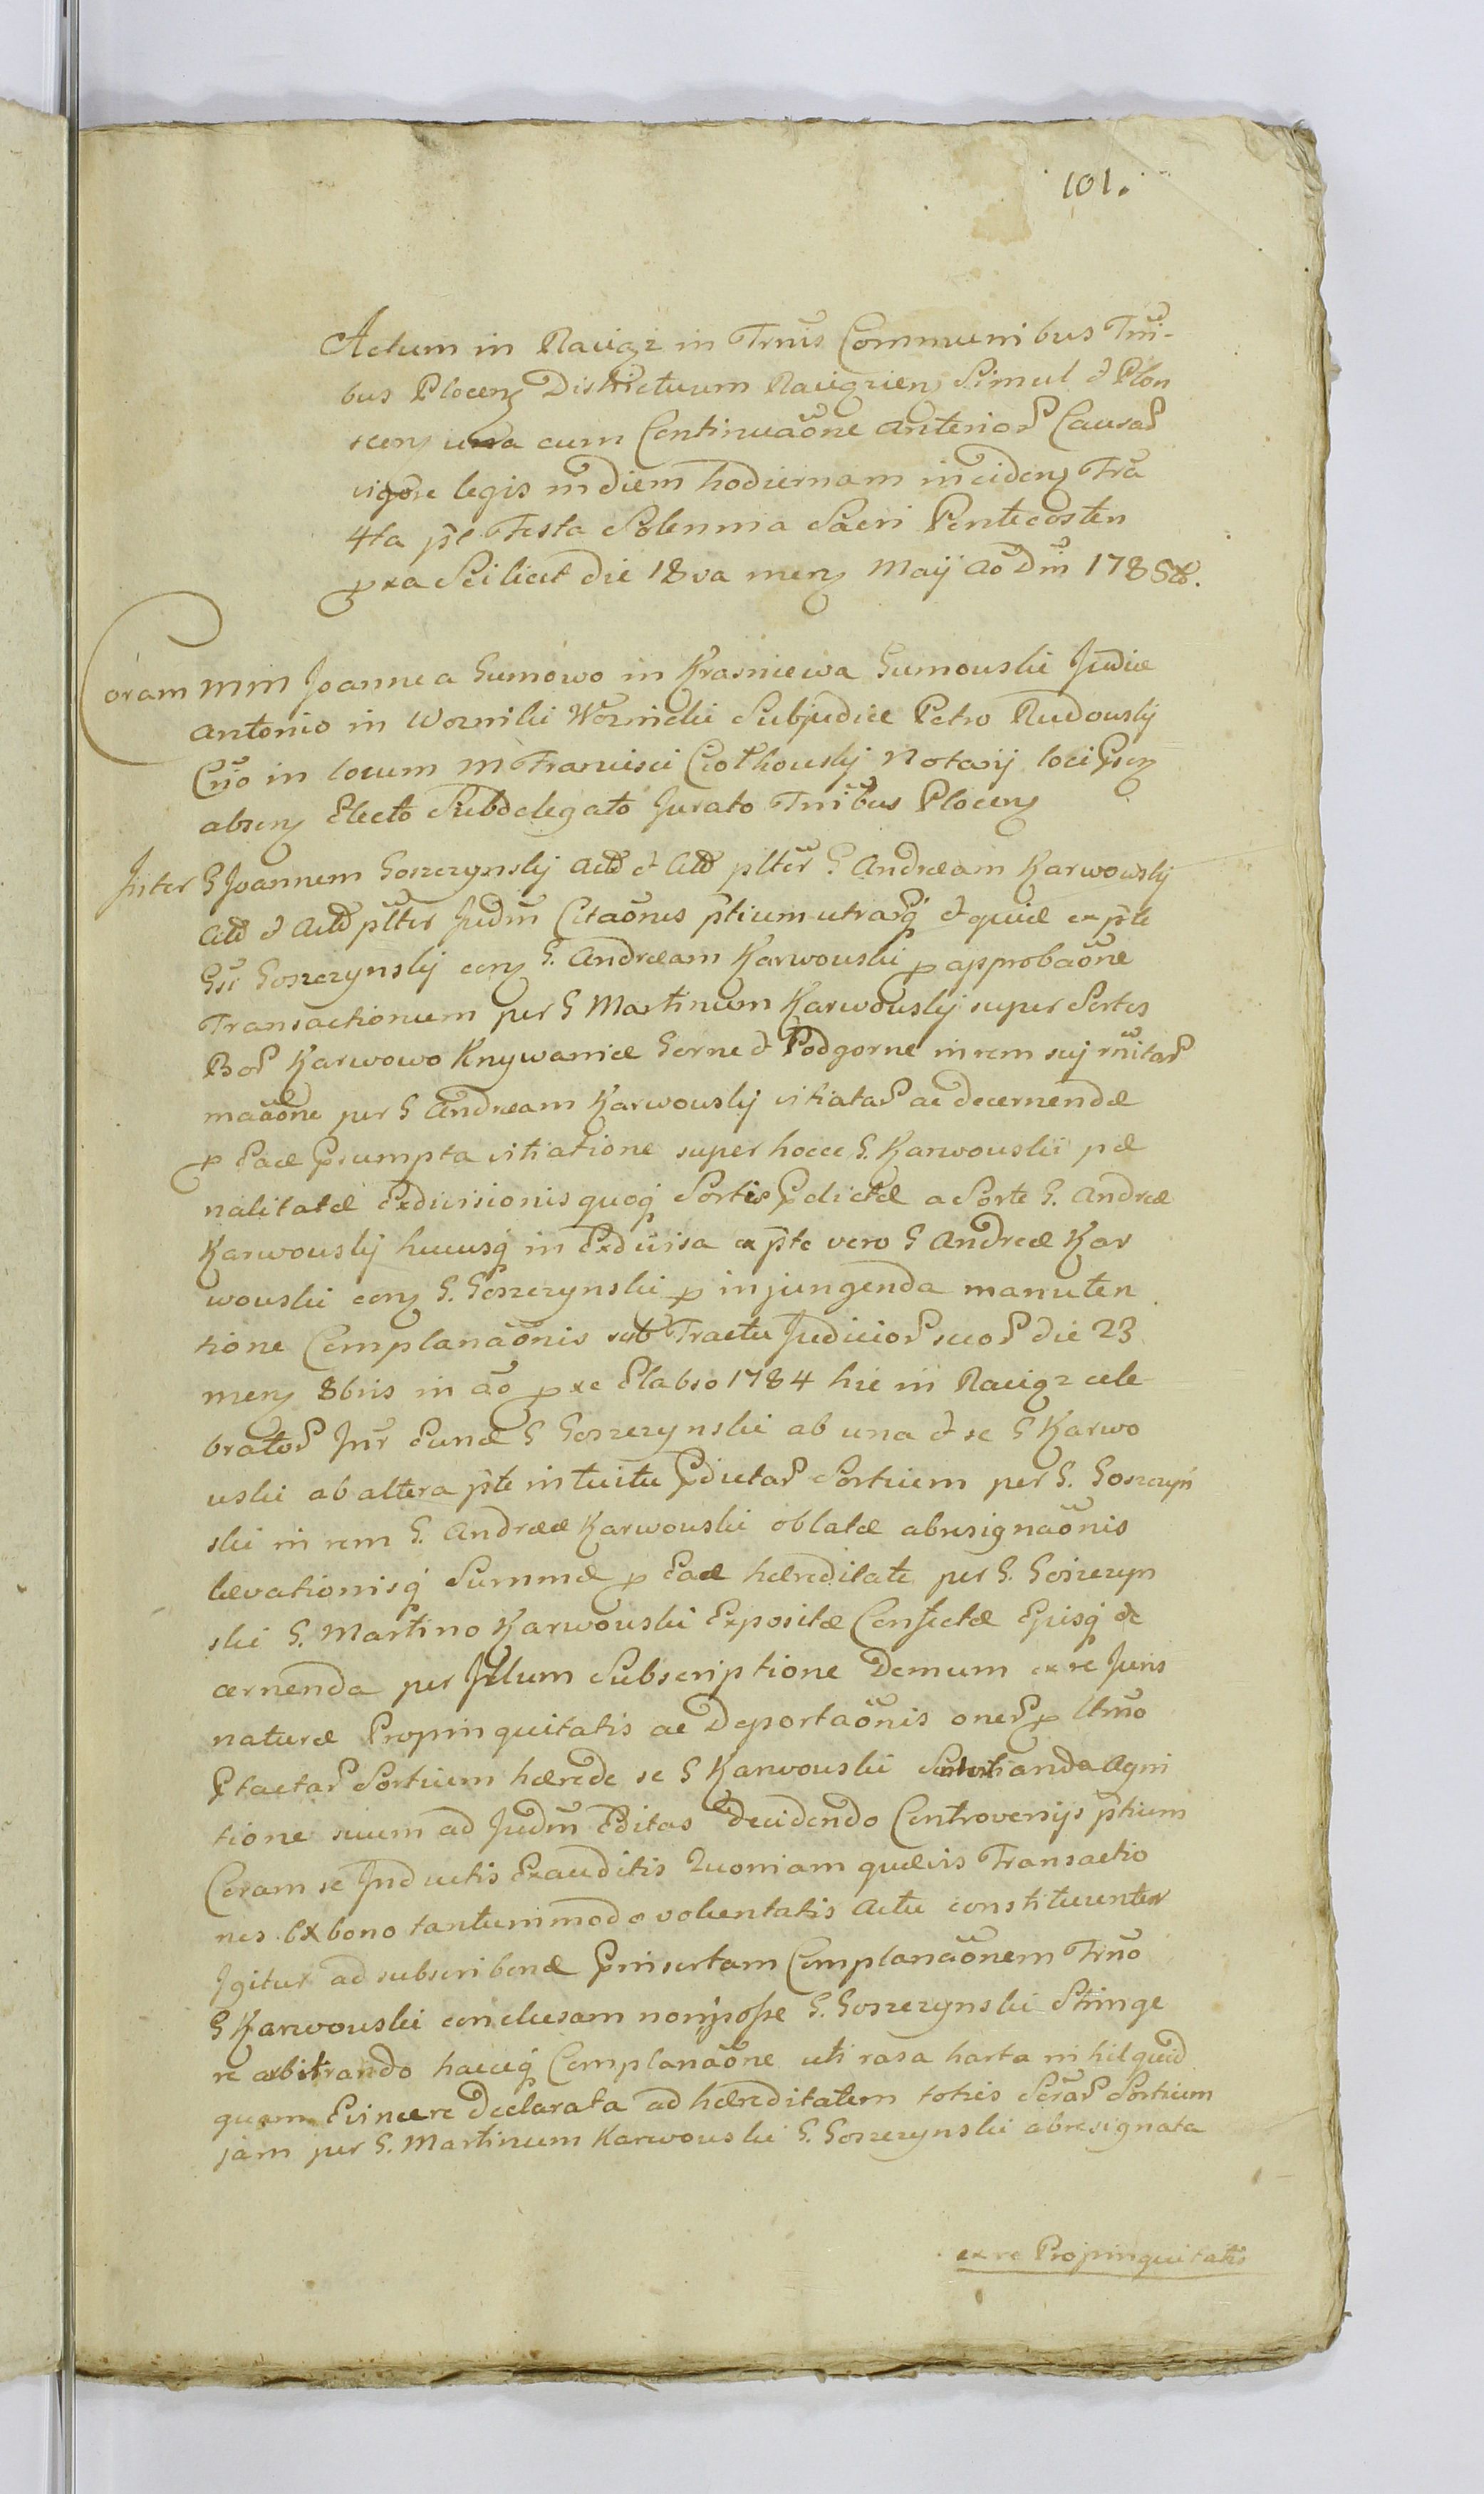 101.
Actum in Raciąz in Trnis Communibus Trni-
bus Plocens Districtuum Raciązien Simul & Plon
scens una cum Continuaone anterior Causar
vigore legis in diem hodiernam incidens Fra
4ta pt Festa Solennia Sacri Pentecosten
pxa Scilicet die 18va mens Maij Ao Dni 1785to.
Coram MM Joanne a Gumowo in Krasniewa Gumouski Judice
Antonio in Wozniki Woznicki Subjudice Petro Rudouskij
Cno in locum M Francisci Ciołkouskij Notarij loci psen
absens Electo Subdelegato Jurato Tnibus Plocens
Inter G Joannem Goszczynskij Actt & Att plter G. Andream Karwowskij
Att & Actt plter Judm Citaonis ptium utrasq & quidē ex pte
Gsi Goszczynskij cons G. Andream Karwouski p approbaone
Transactionum per G Martinum Karwouskij super Sortes
Bor Karwowo Krzywanice Gorne & Podgorne in rem suj rnitar
maaone per G Andream Karwouskij vitiatar ac decernendæ
p Eadē psumpta vitiatione super hocce G. Karwouskii pæ
nalitatæ Exdivisionis quoq Sortis pdictæ a Sorte G. Andreæ
Karwouskij hucusq in Exdivisa ex pte vero G Andreæ Kar
wouski cons G. Goszczynski p injungenda manuten
tione Complanaonis sub Tractu Judicior suor die 23
mens 8bris in ao pxe Elabso 1784 hic in Raciąz cele
brator Intr Eundē G Goszczynski ab una & se G Karwo
uski ab altera pte intuitu pdictar Sortium per G. Goszczyn
ski in rem G. Andreæ Karwouski oblatæ abresignaonis
levationisq Summæ p Eadē hæreditate per G. Goszczyn
ski G. Martino Karwouski Expositæ Confectæ Ejusq de
cernenda per Illum Subscriptione Demum ex re Juris
naturæ Propinquitatis ac Deportaonis oner p Utrno
ptactar Sortium hærede se G Karwouski agni
tione suum ad Judm Editas Decidendo Controversijs ptium
Coram se Inductis Exauditis Quoniam quævis Transactio
nes Ex bono tantummodo voluntatis actu constituuntur
Igitur ad subscribendē pinsertam Complanaonem Trno
G Karwouski conclusam non posse G. Goszczynski Stringe
re arbitrando hacceq Complanaone uti rasa harta nihil quid
quam Evincere Declarata ad hæreditatem toties Scrar Sortium
jam per G. Martinum Karwouski G. Goszczynski abresignata
ex re Propinquitatis